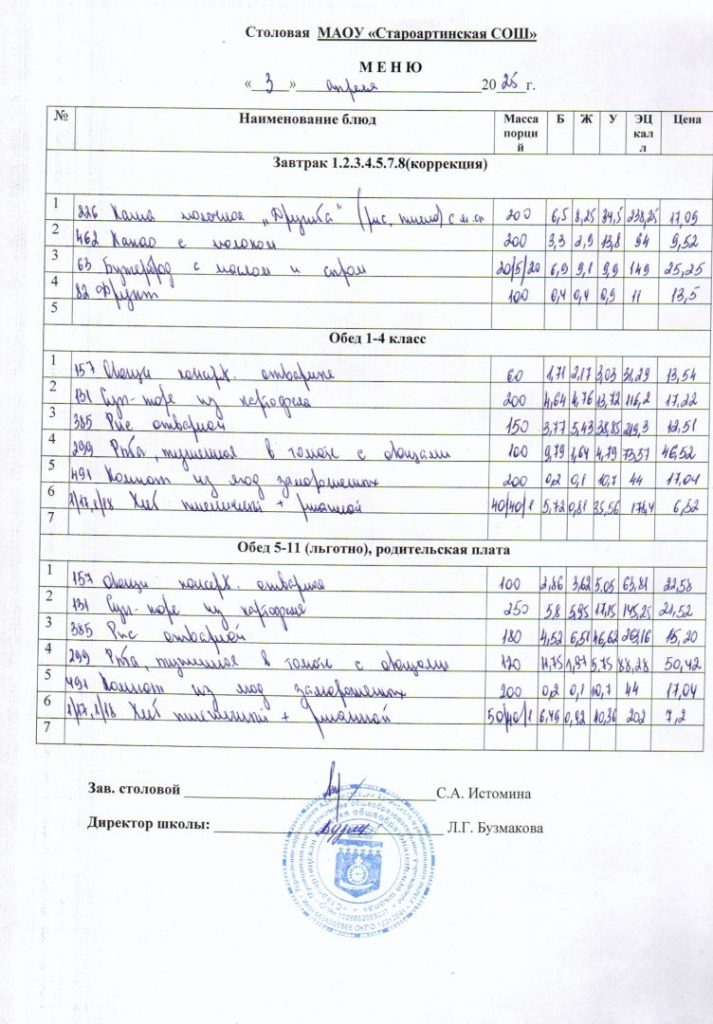 Столовая МАОУ «Староартинская СОШ»
М Е Н Ю
« 3 » апреля 2025 г.
№ Наименование блюд Масса порций Б Ж У ЭЦ кал л Цена
Завтрак 1.2.3.4.5.7.8(коррекция)
1 226 Каша молочная „Дружба" (рис, пшено) с м.сл 200 6,5 8,25 34,5 238,25 17,09
2 462 Какао с молоком 200 3,3 2,9 13,8 94 9,52
3 63 Бутерброд с маслом и сыром 20/5/20 6,9 9,1 9,9 149 25,25
4 82 Фрукт 100 0,4 0,4 0,9 11 13,5
5
Обед 1-4 класс
1 157 Овощи консерв. отварные 60 1,71 2,17 3,03 31,29 13,54
2 131 Суп-пюре из картофеля 200 4,64 4,76 13,72 116,2 17,22
3 385 Рис отварной 150 3,77 5,43 38,85 219,3 12,51
4 299 Рыба, тушенная в томате с овощами 100 9,79 1,64 4,79 73,57 46,52
5 491 Компот из ягод замороженых 200 0,2 0,1 10,7 44 17,04
6 1/17,1/18 Хлеб пшеничный + ржаной 40/40/1 5,72 0,81 35,56 178,4 6,52
7
Обед 5-11 (льготно), родительская плата
1 157 Овощи консерв. отварные 100 2,86 3,62 5,05 63,81 22,58
2 131 Суп-пюре из картофеля 250 5,8 5,95 17,15 145,25 21,52
3 385 Рис отварной 180 4,52 6,51 46,62 263,16 15,20
4 299 Рыба, тушенная в томате с овощами 120 11,75 1,97 5,75 88,28 50,42
5 491 Компот из ягод замороженых 200 0,2 0,1 10,7 44 17,04
6 1/17,1/18 Хлеб пшеничный + ржаной 50/40/1 6,49 0,92 40,36 202 7,2
7
Зав. столовой С.А. Истомина
Директор школы: Л.Г. Бузмакова